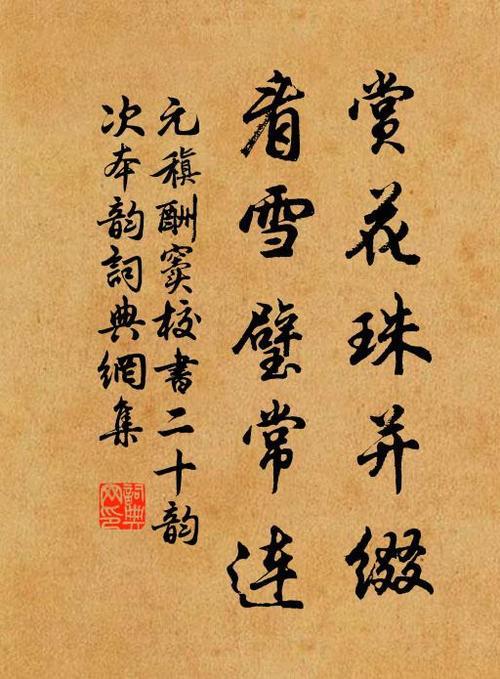 赏花珠并缀
看雪璧常连
元稹酬窦校书二十韵
次本韵詞典網集
詞典網印